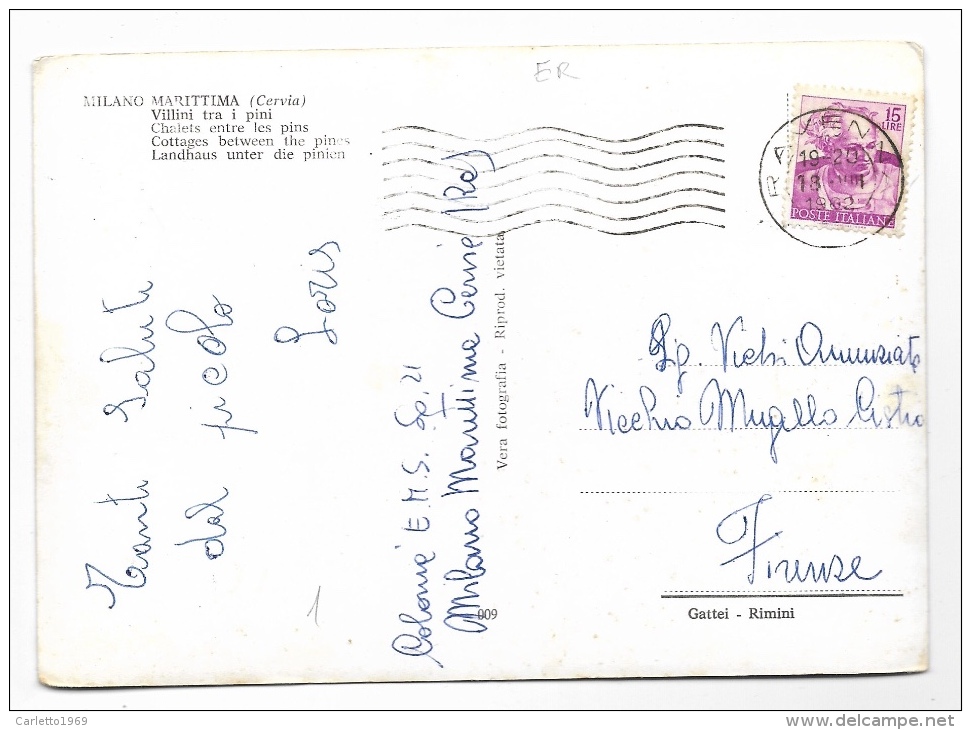 ER
MILANO MARITTIMA (Cervia)
Villini tra i pini
Chalets entre les pins
Cottages between the pines
Landhaus unter die pinien
15
LIRE
POSTE ITALIANE
RAVENNA
19-20
18 VIII
Tanti saluti
dal piccolo
Loris
Colonia E.M.S. Sq. 21
Milano Marittima Cervia (Ra)
Vera fotografia - Riprod. vietata
009
Sig. Vichi Annunziata
Vicchio Mugello
Firenze
Gattei - Rimini
1
Carletto1969
www.delcampe.net